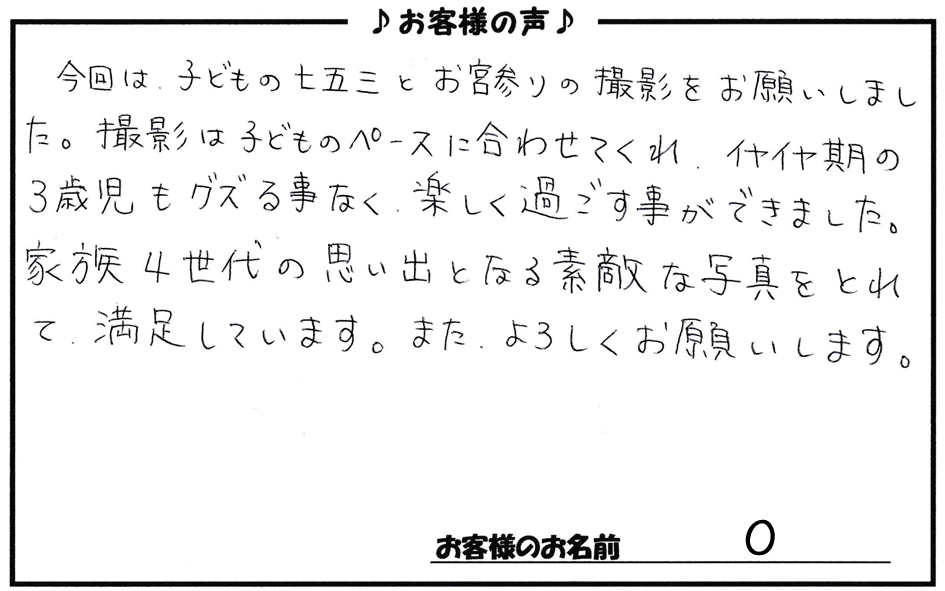 ♪お客様の声♪
今回は、子どもの七五三とお宮参りの撮影をお願いしまし
た。撮影は子どものペースに合わせてくれ、イヤイヤ期の
3歳児もグズる事なく、楽しく過ごす事ができました。
家族4世代の思い出となる素敵な写真をとれ
て、満足しています。また、よろしくお願いします。
お客様のお名前 O